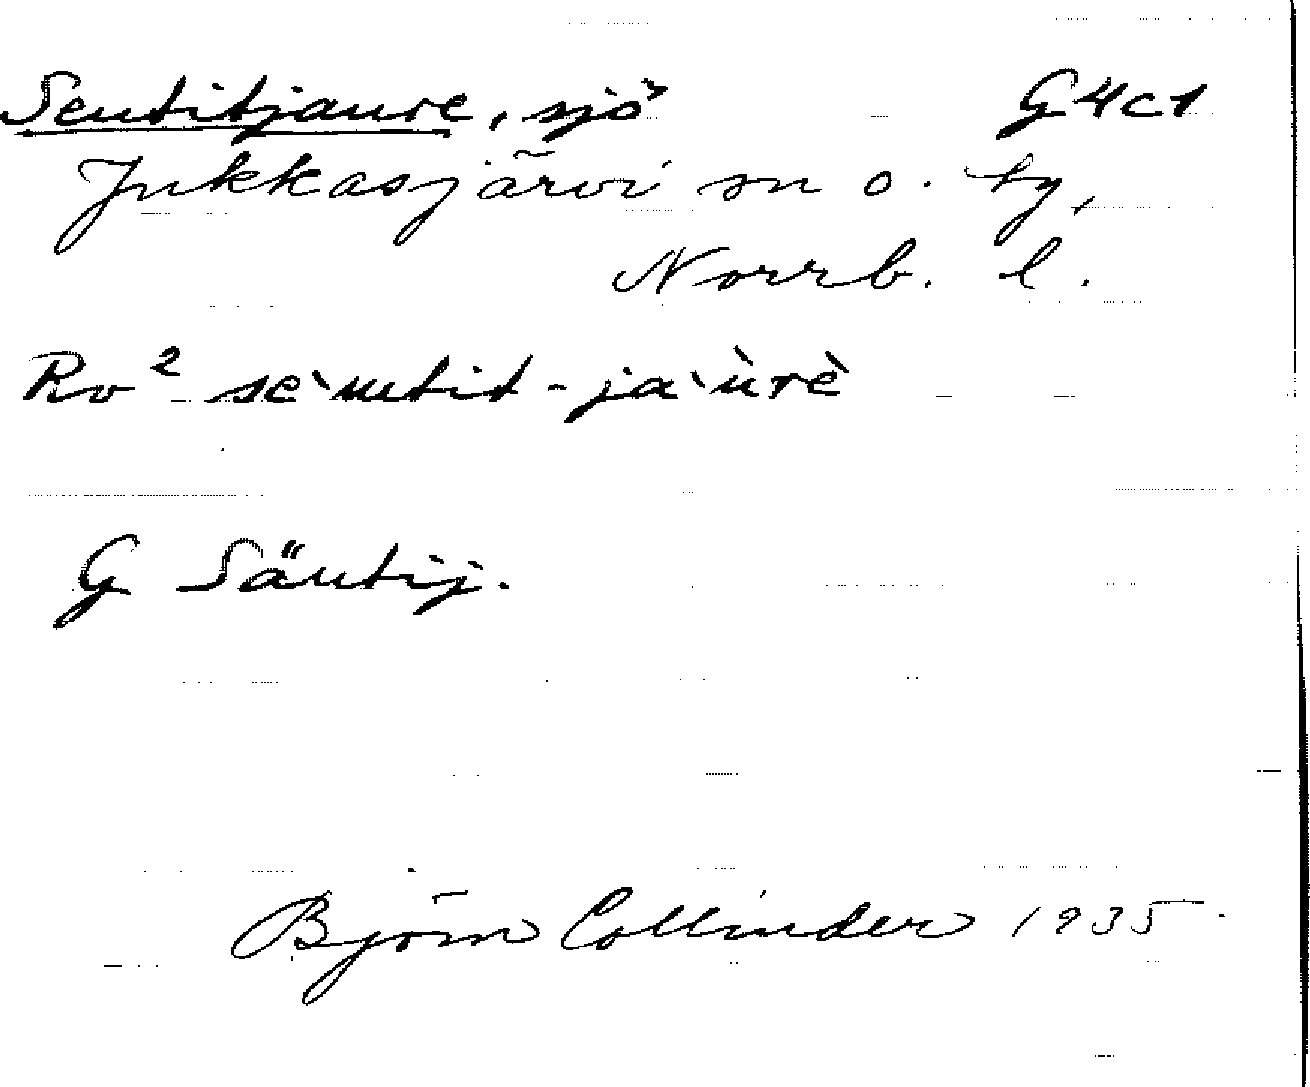 Sentitjaure, sjö G4c1
Jukkasjärvi sn o. ty,
Norrb. l.
Rv² sèntit-jaùrè
G Säntij.
Björn Collinder 1935